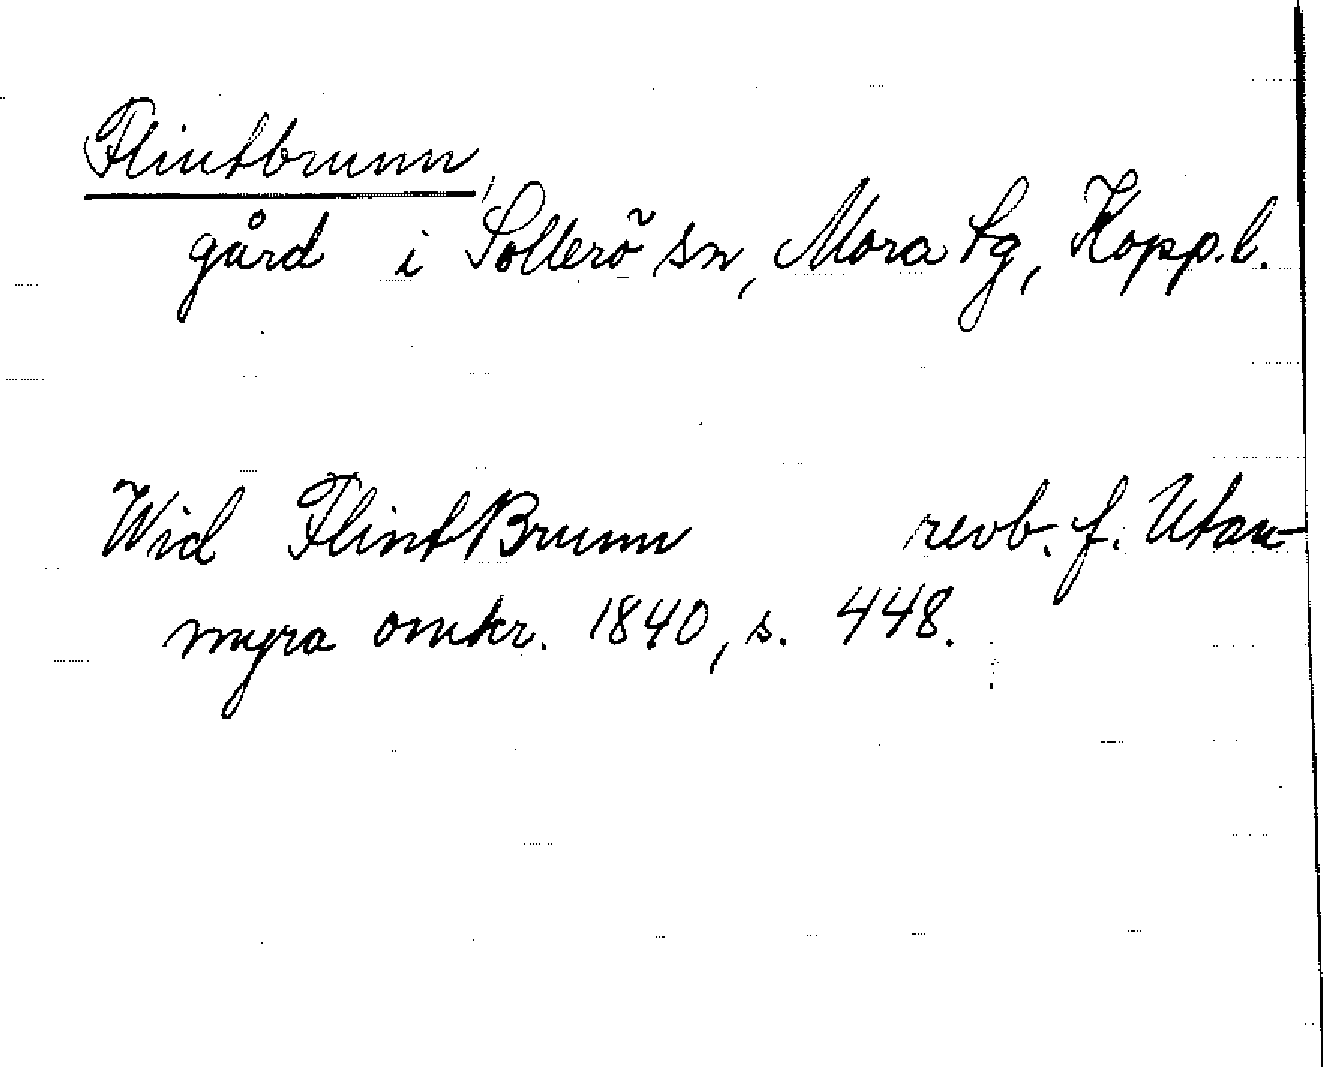 Flintbrunn,
gård i Sollerö sn, Mora tg, Kopp.l.
Wid FlintBrunn revb. f. Utan-
myra omkr. 1840, s. 448.